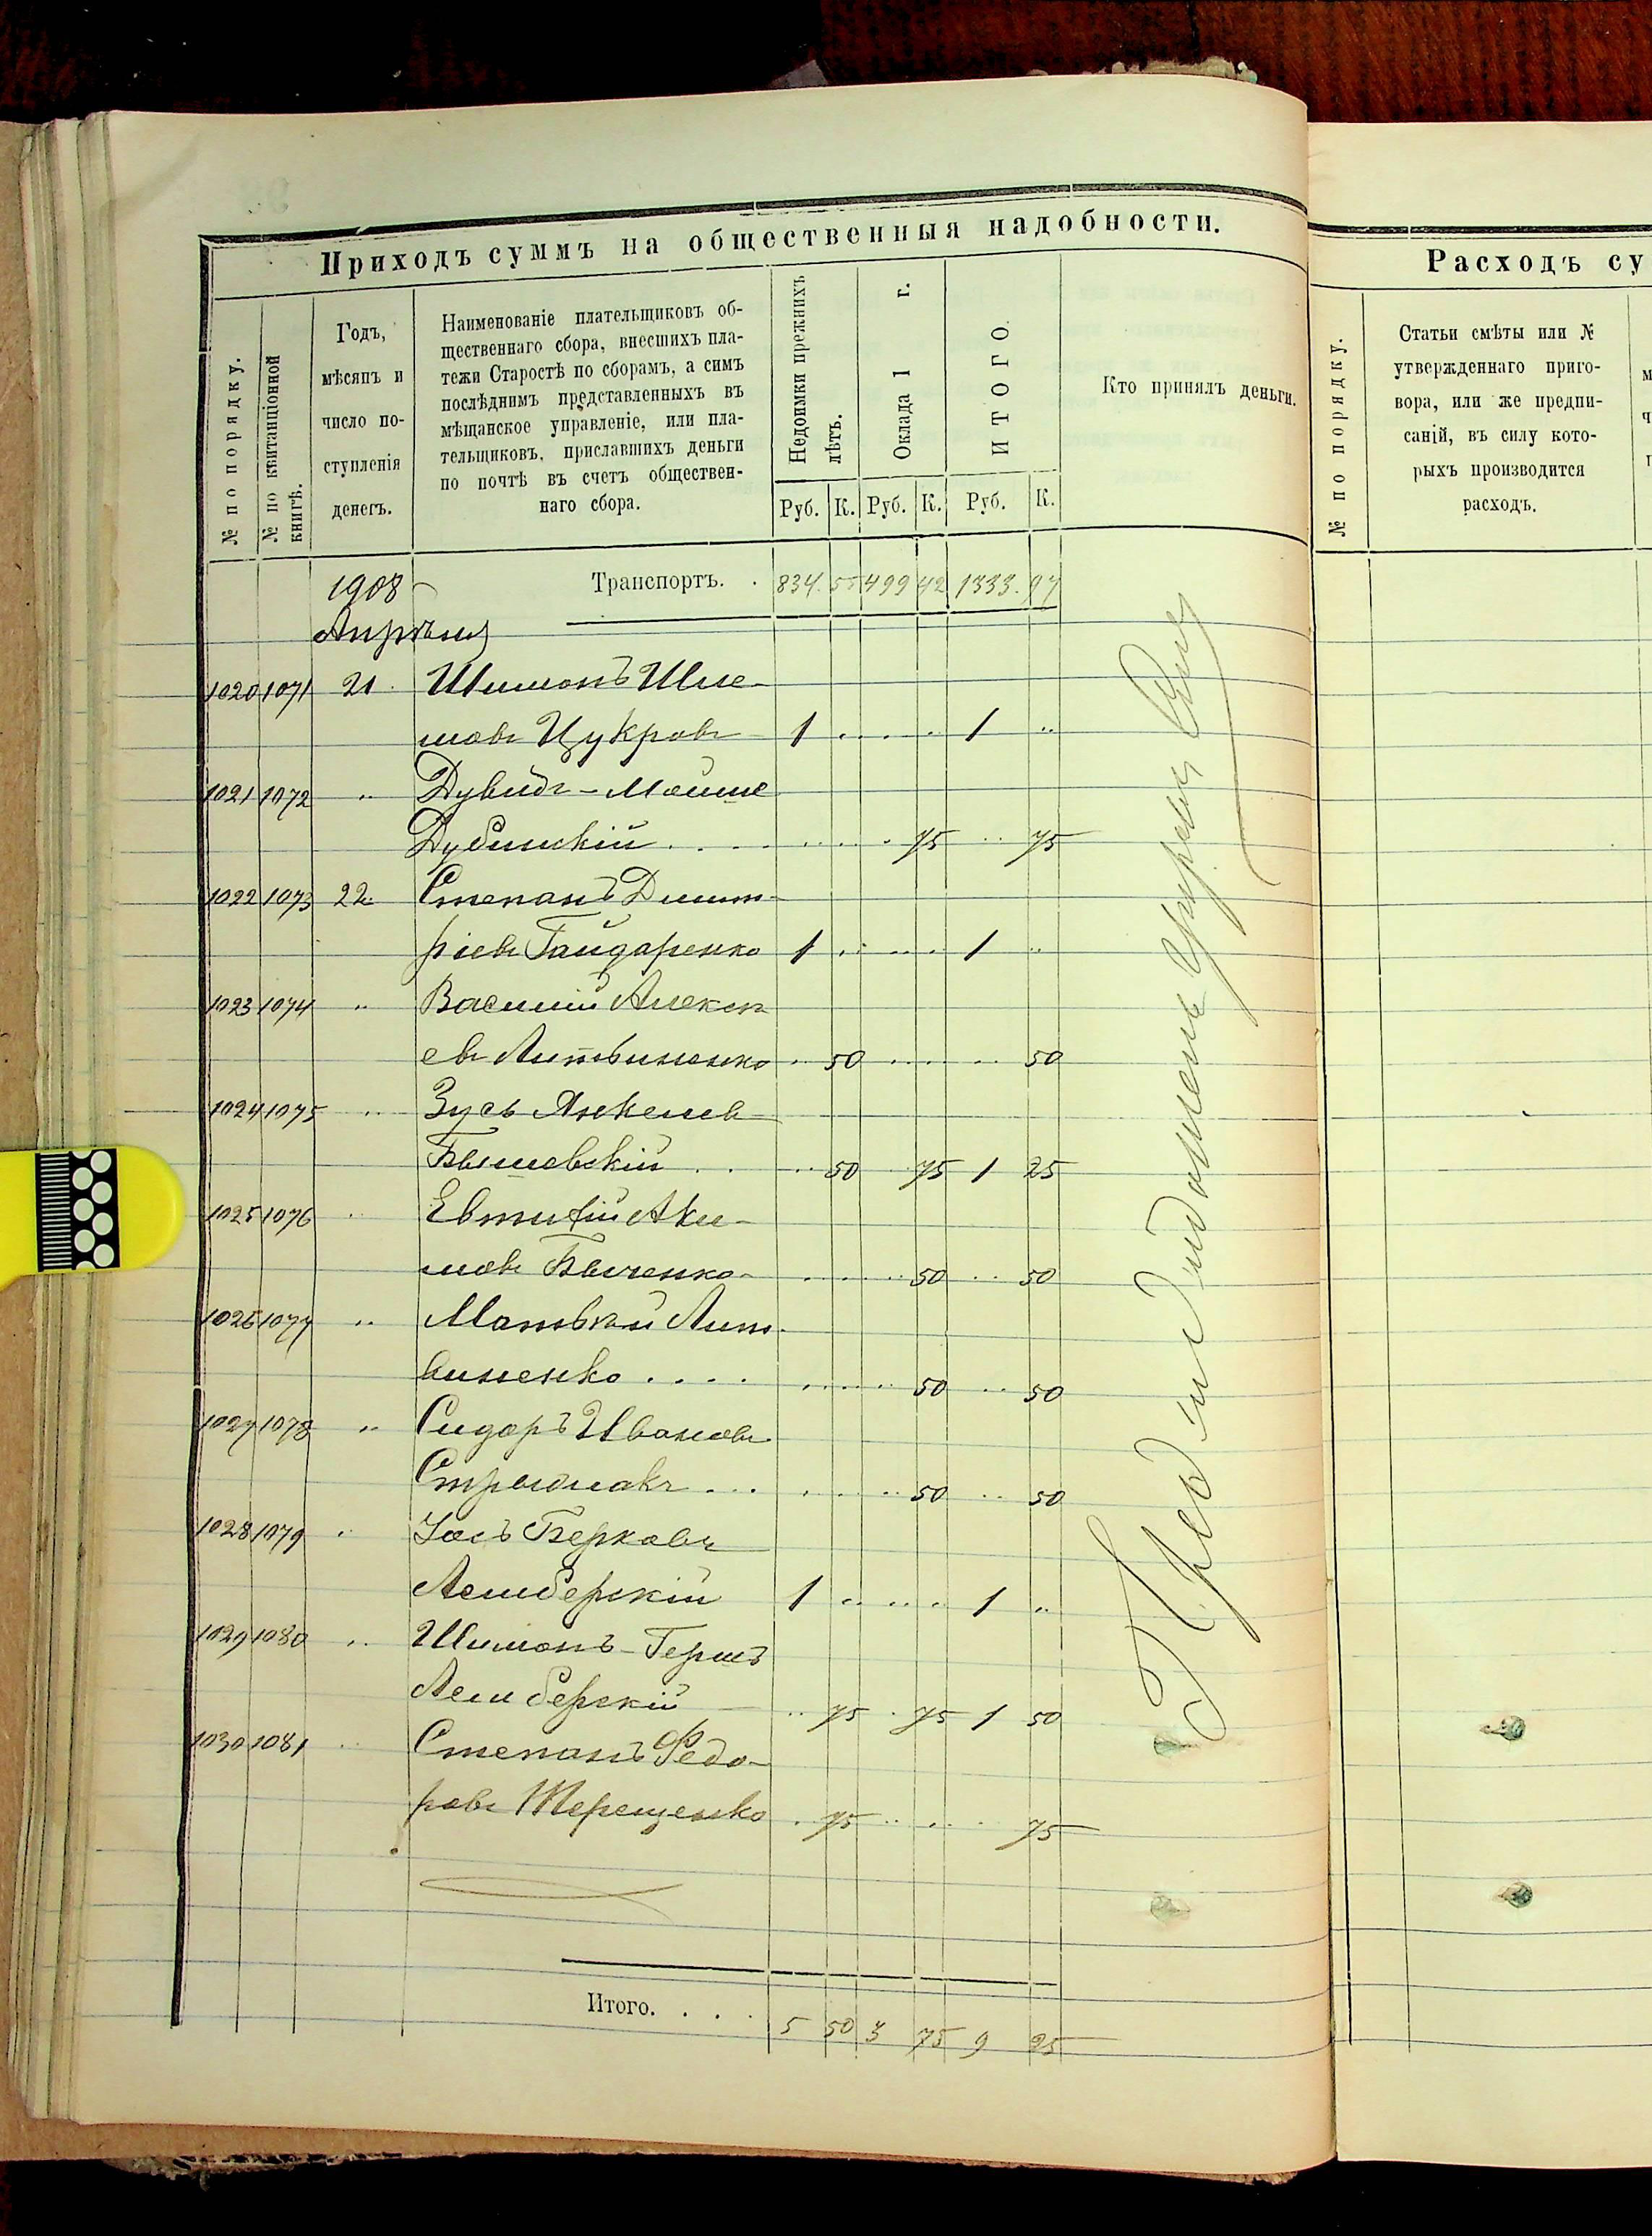 Приходъ суммъ на общественныя надобности.
№ по порядку.
№ по квитанціонной
книгѣ.
Годъ,
мѣсяцъ и
число по-
ступленія
денегъ.
Наименованіе плательщиковъ об-
щественнаго сбора, внесшихъ пла-
тежи Старостѣ по сборамъ, а симъ
послѣднимъ представленныхъ въ
мѣщанское управленіе, или пла-
тельщиковъ, приславшихъ деньги
по почтѣ въ счетъ обществен-
наго сбора.
Недоимки прежнихъ
лѣтъ.
Оклада 1 г.
ИТОГО.
Кто принялъ деньги.
Руб. К. Руб. К. Руб. К.
1908 Транспортъ. . 834. 55 499 42 1333. 97
Апрѣля
1020 1071 21 Шимонъ Шле-
мовъ Цукровъ 1 .. .. .. 1 ..
1021 1072 .. Дувидъ-Мойше
Дубинскій .... 75 .. 75
1022 1073 22 Степанъ Дмит-
ріевъ Гайдаренко 1 .. .. .. 1 ..
1023 1074 .. Василій Алексѣ
евъ Литвиненко .. 50 .. .. .. 50
1024 1075 .. Зусь Янкелев
Бышевскій .. .. 50 .. 75 1 25
1025 1076 .. Евтифій Аки-
мовъ Быченко .. .. .. 50 .. 50
1026 1077 .. Матвѣй Лит-
виненко .... .. .. .. 50 .. 50
1027 1078 .. Сидоръ Ивановъ
... .. .. .. 50 .. 50
1028 1079 .. Іосъ Берковъ
Лемберскій 1 .. .. .. 1 ..
1029 1080 .. Шимонъ-Гершъ
Лемберскій .. 75 .. 75 1 50
1030 1081 .. Степанъ Федо-
ровъ Терещенко .. 75 .. .. .. 75
Итого. . . . 5 50 3 75 9 25
Расходъ су
№ по порядку.
Статьи смѣты или №
утвержденнаго приго-
вора, или же предпи-
саній, въ силу кото-
рыхъ производится
расходъ.